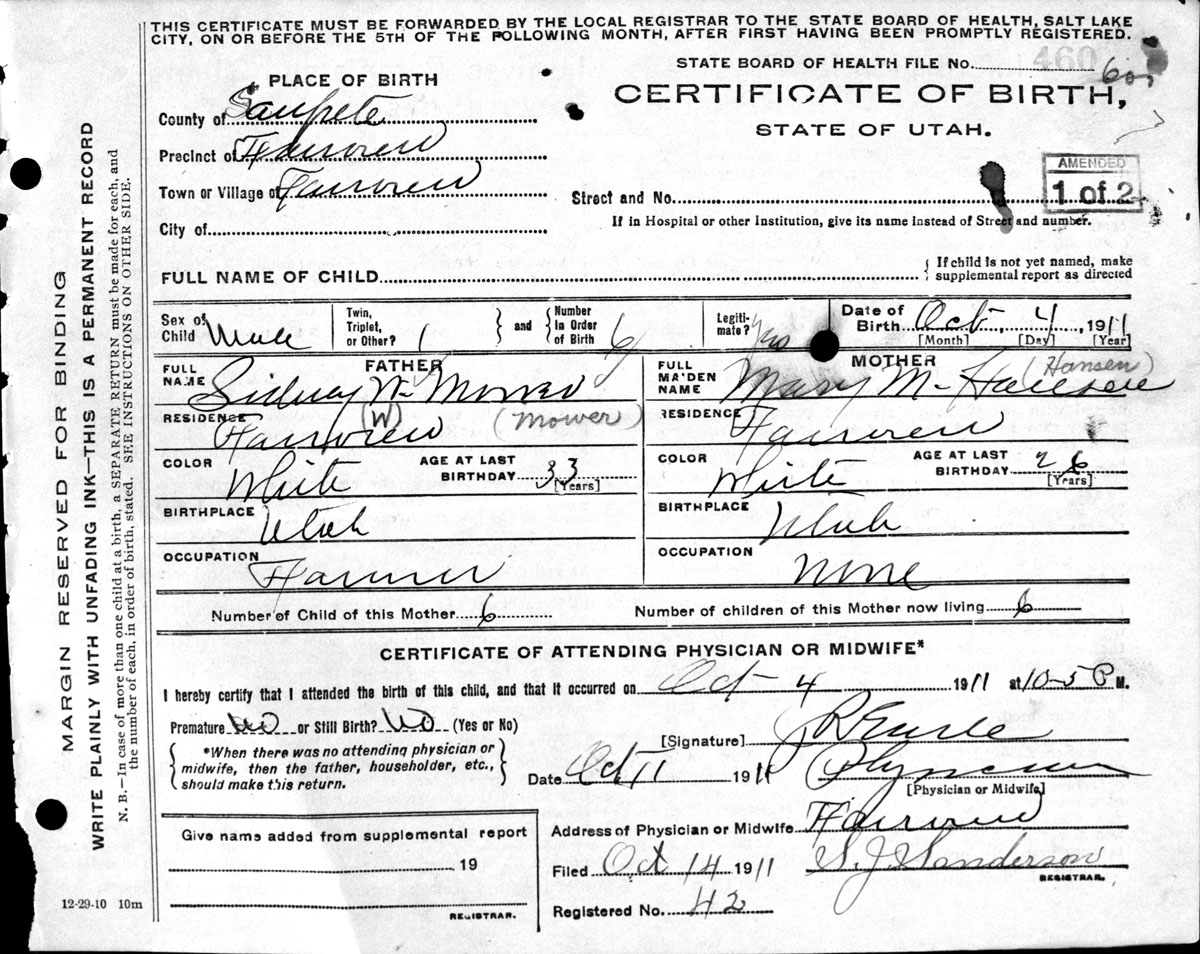 THIS CERTIFICATE MUST BE FORWARDED BY THE LOCAL REGISTRAR TO THE STATE BOARD OF HEALTH, SALT LAKE
CITY, ON OR BEFORE THE 5TH OF THE FOLLOWING MONTH, AFTER FIRST HAVING BEEN PROMPTLY REGISTERED.
STATE BOARD OF HEALTH FILE No. 460
PLACE OF BIRTH
CERTIFICATE OF BIRTH,
STATE OF UTAH.
County of Sanpete
Precinct of Fairview
Town or Village of Fairview
City of
AMENDED
1 of 2
Street and No.
If in Hospital or other Institution, give its name instead of Street and number.
FULL NAME OF CHILD
{ If child is not yet named, make
supplemental report as directed
Sex of Child Male
Twin, Triplet, or Other? 1 } and { Number In Order of Birth 6
Legiti-mate? yes
Date of Birth Oct 4, 1911
[Month] [Day] [Year]
FATHER
FULL NAME Sidney W Mower
RESIDENCE Fairview (W) (Mower)
COLOR White AGE AT LAST BIRTHDAY 33
[Years]
BIRTHPLACE Utah
OCCUPATION Farmer
MOTHER (Hansen)
FULL MAIDEN NAME Mary M Hansen
RESIDENCE Fairview
COLOR White AGE AT LAST BIRTHDAY 26
[Years]
BIRTHPLACE Utah
OCCUPATION None
Number of Child of this Mother 6 Number of children of this Mother now living 6
CERTIFICATE OF ATTENDING PHYSICIAN OR MIDWIFE*
I hereby certify that I attended the birth of this child, and that it occurred on Oct 4 1911 at 10-5 P M.
Premature No or Still Birth? No (Yes or No)
*When there was no attending physician or
midwife, then the father, householder, etc.,
should make this return.
[Signature]
Date Oct 11 1911 Physician
[Physician or Midwife]
Give name added from supplemental report
19
REGISTRAR.
Address of Physician or Midwife Fairview
Filed Oct 14 1911 S. J. Sanderson
REGISTRAR.
Registered No. 42
12-29-10 10m
MARGIN RESERVED FOR BINDING
WRITE PLAINLY WITH UNFADING INK—THIS IS A PERMANENT RECORD
N. B.—In case of more than one child at a birth, a SEPARATE RETURN must be made for each, and
the number of each, in order of birth, stated. SEE INSTRUCTIONS ON OTHER SIDE.